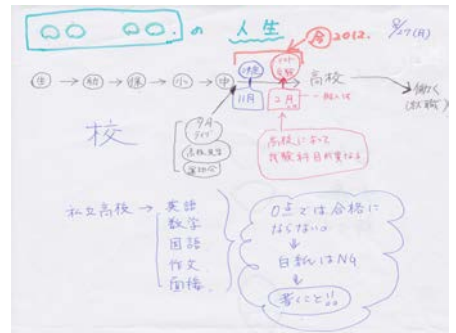 ○○ ○○.の 人生
今 2012. 8/27(月)
生 → 幼 → 保 → 小 → 中 高校 → 働く
(就職)
受験
11月 2月 一般入試
校
タイプ
高校見学
高校によって
試験科目が異なる
私立高校 → 英語
数学
国語
作文
面接
0点では合格に
ならない。
↓
白紙はNG
↓
書くこと!!